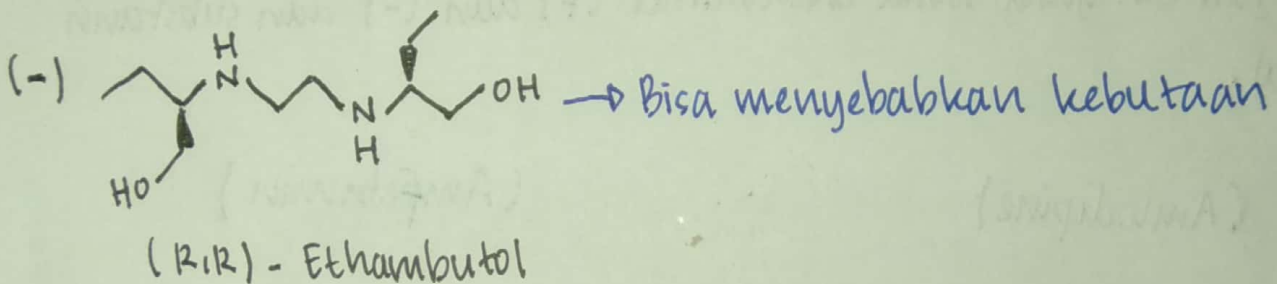 (-)
H
N
N
H
OH
HO
→ Bisa menyebabkan kebutaan
(R,R) - Ethambutol